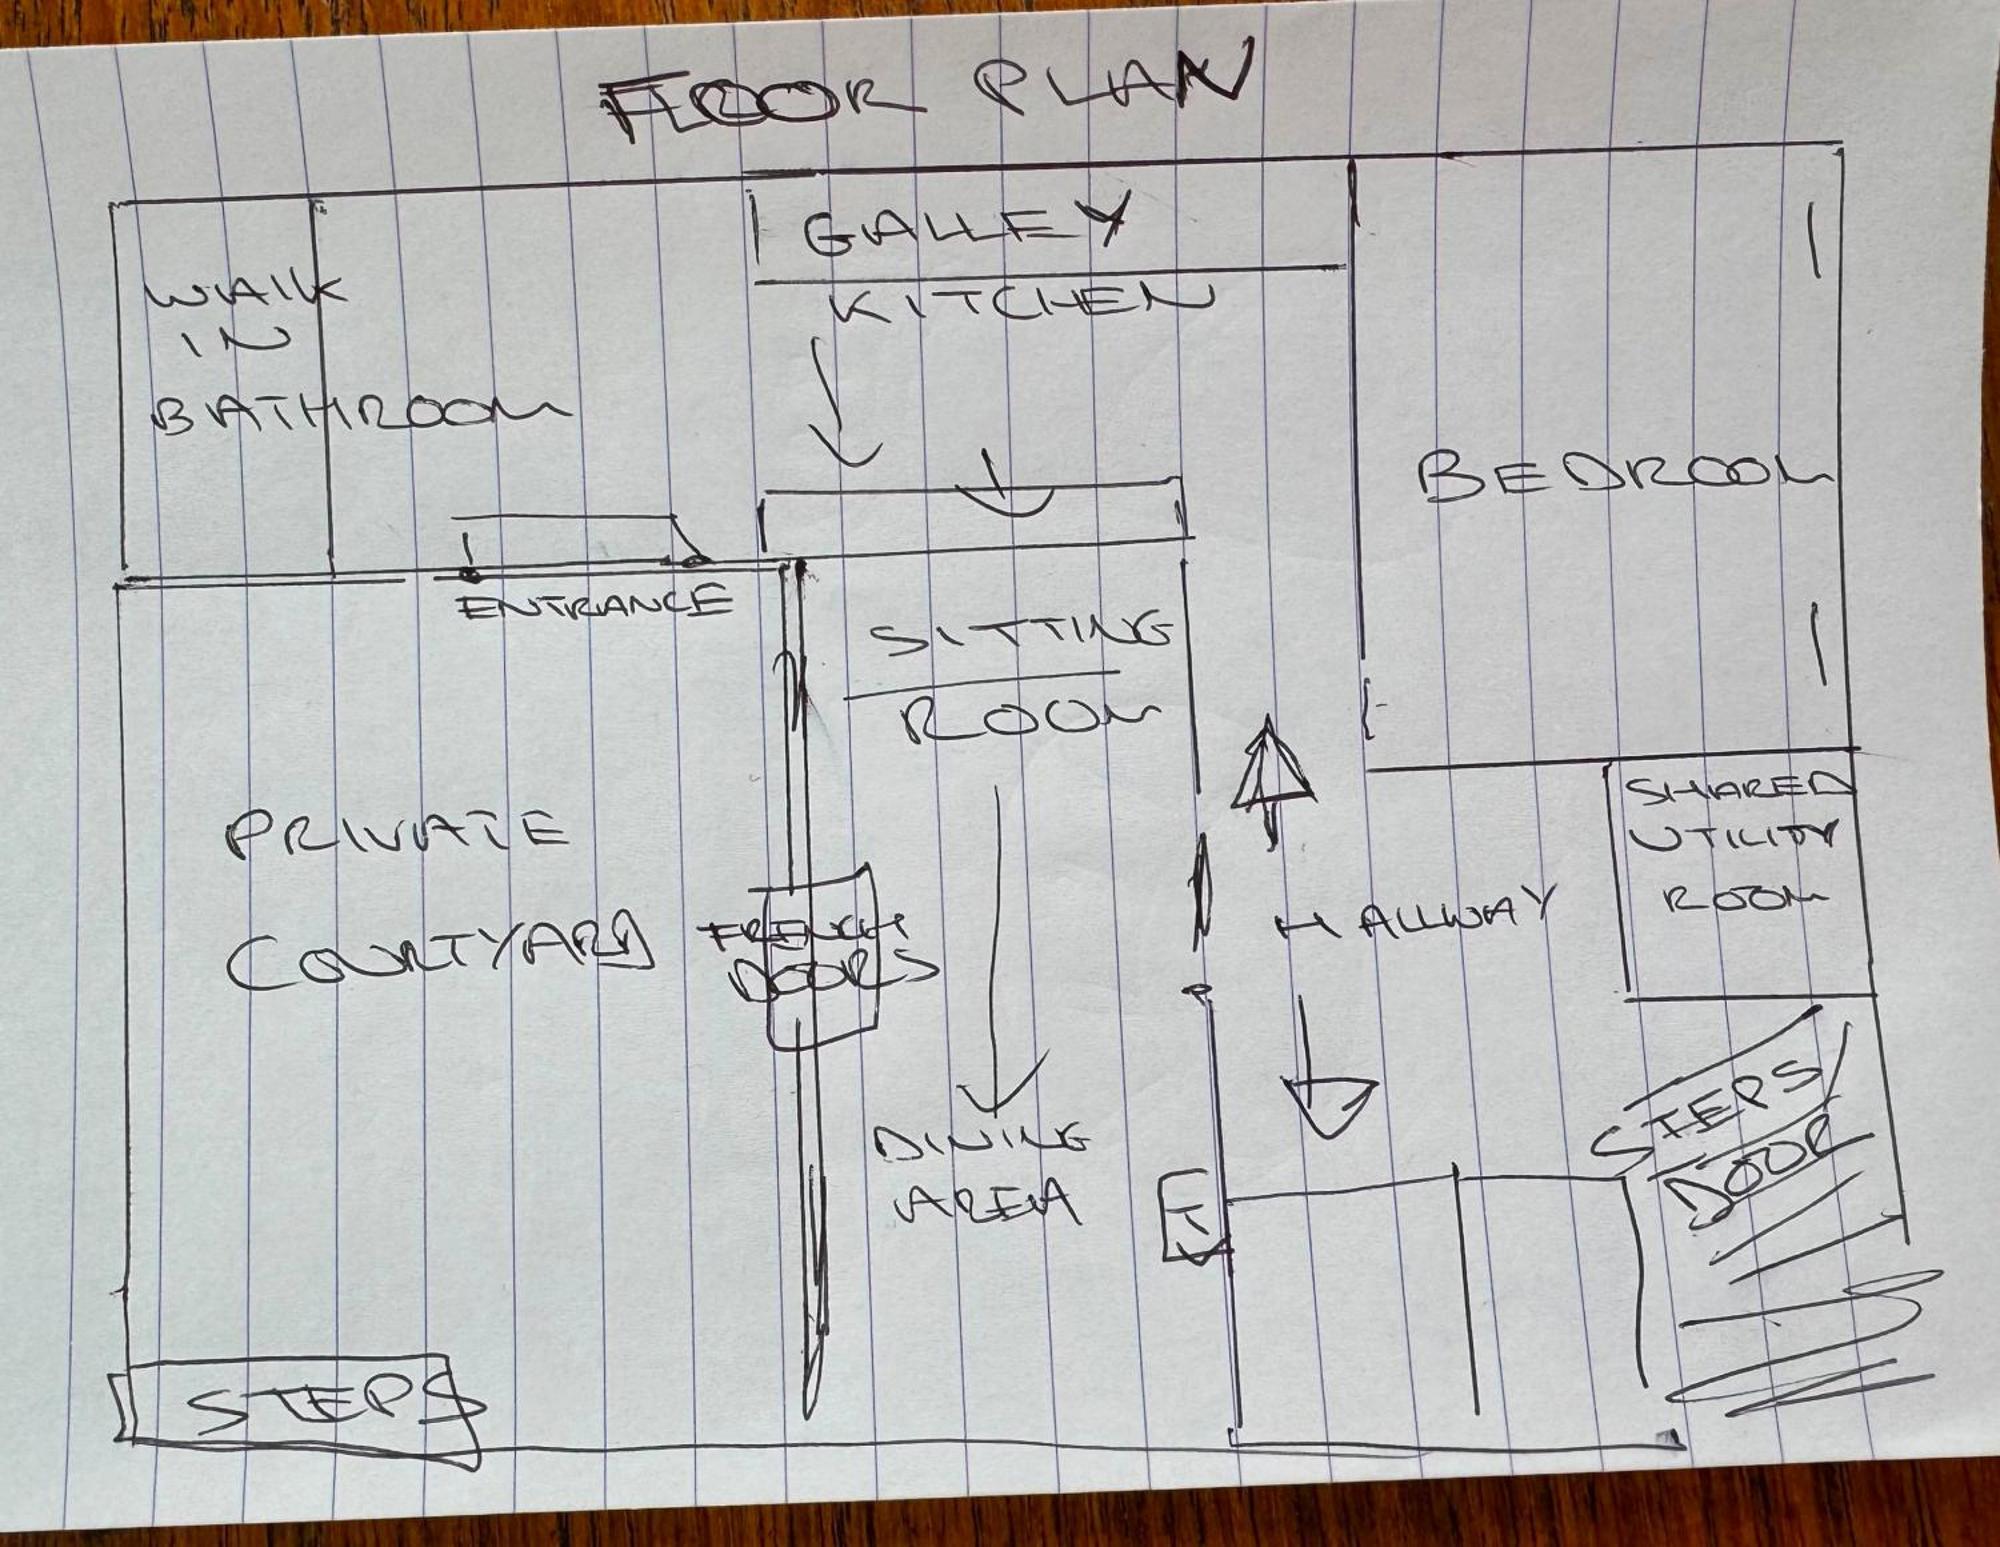 FLOOR PLAN
GALLEY
KITCHEN
WALK
IN
BATHROOM
BEDROOM
ENTRANCE
SITTING
ROOM
SHARED
UTILITY
ROOM
PRIVATE
COURTYARD
FRENCH
DOORS
HALLWAY
STEPS
DOOR
DINING
AREA
STEPS